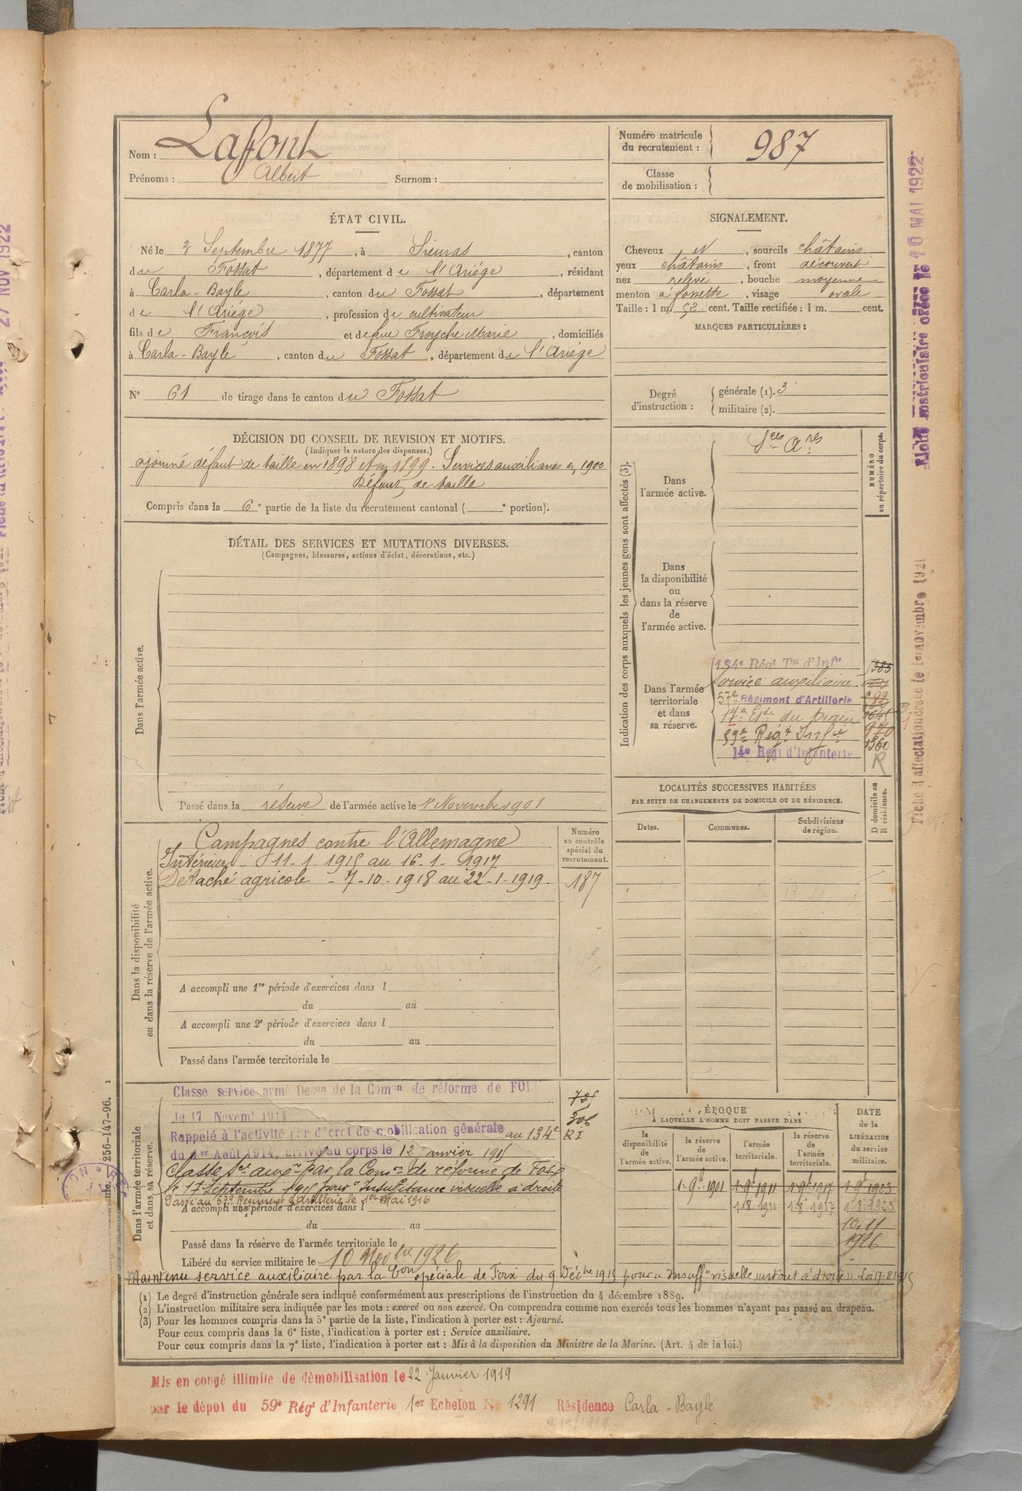 Nom : Lafont
Prénoms : Albert Surnom :
Numéro matricule du recrutement : 987
Classe de mobilisation :
ÉTAT CIVIL.
Né le 2 Septembre 1877, à Sieuras, canton
du Fossat, département de l'Ariège, résidant
à Carla-Bayle, canton du Fossat, département
de l'Ariège, profession de cultivateur
fils de François et de feue Marie, domiciliés
à Carla-Bayle, canton du Fossat, département de l'Ariège
N° 61 de tirage dans le canton du Fossat
SIGNALEMENT.
Cheveux N, sourcils châtains
yeux châtains, front découvert
nez relevé, bouche moyenne
menton à fossette, visage ovale
Taille : 1 m. 52 cent. Taille rectifiée : 1 m. cent.
MARQUES PARTICULIÈRES :
Degré d'instruction : générale (1). 3
militaire (2).
DÉCISION DU CONSEIL DE REVISION ET MOTIFS.
(Indiquer la nature des dispenses.)
ajourné défaut de taille en 1898 et en 1899. Services auxiliaires en 1900
Défaut de taille
Compris dans la 6e partie de la liste du recrutement cantonal ( e portion).
DÉTAIL DES SERVICES ET MUTATIONS DIVERSES.
(Campagnes, blessures, actions d'éclat, décorations, etc.)
Dans l'armée active.
Passé dans la réserve de l'armée active le 1er Novembre 1901
Indication des corps auxquels les jeunes gens sont affectés (3).
NUMÉRO au répertoire du corps.
Dans l'armée active.
Ses Ares
Dans la disponibilité ou dans la réserve de l'armée active.
Dans l'armée territoriale et dans sa réserve.
134e Régt Tal d'Infie
Service auxiliaire
57e Régiment d'Artillerie
59e Régt Infie
14e Régt d'Infanterie
1360
R
LOCALITÉS SUCCESSIVES HABITÉES
PAR SUITE DE CHANGEMENTS DE DOMICILE OU DE RÉSIDENCE.
Dates. Communes. Subdivisions de région. D domicile ou R résidence.
Dans la disponibilité ou dans la réserve de l'armée active.
Numéro au contrôle spécial du recrutement.
187
Campagnes contre l'Allemagne
Intérieur - 11-1-1915 au 16-1-1917
Détaché agricole - 7-10-1918 au 22-1-1919.
A accompli une 1re période d'exercices dans l
du au
A accompli une 2e période d'exercices dans l
du au
Passé dans l'armée territoriale le
Dans l'armée territoriale et dans sa réserve.
Classé service armé Décon de la Comon de réforme de FOIX
le 17 Novemb 1914
Rappelé à l'activité par décret de mobilisation générale au 134e RI
du 1er Août 1914, arrivé au corps le 12 janvier 1915
Classé Sce auxre par la Comon de réforme de Foix
le 17 Septembre 1915 pour Insuffisance visuelle à droite
Passé au 57e Régiment d'Artillerie le 1er Mai 1916
A accompli une période d'exercices dans l
du au
Passé dans la réserve de l'armée territoriale le
Libéré du service militaire le 10 Novbre 1926
Maintenu service auxiliaire par la Con spéciale de Foix du 9 Décbre 1915 pour
ÉPOQUE
À LAQUELLE L'HOMME DOIT PASSER DANS
la disponibilité de l'armée active. la réserve de l'armée active. l'armée territoriale. la réserve de l'armée territoriale.
DATE DE LA LIBÉRATION du service militaire.
1-9bre 1901 1-9bre 1911 1-9bre 1917 1-9bre 1923
10.11
1926
(1) Le degré d'instruction générale sera indiqué conformément aux prescriptions de l'instruction du 4 décembre 1889.
(2) L'instruction militaire sera indiquée par les mots : exercé ou non exercé. On comprendra comme non exercés tous les hommes n'ayant pas passé au drapeau.
(3) Pour les hommes compris dans la 5e partie de la liste, l'indication à porter est : Ajourné.
Pour ceux compris dans la 6e liste, l'indication à porter est : Service auxiliaire.
Pour ceux compris dans la 7e liste, l'indication à porter est : Mis à la disposition du Ministre de la Marine. (Art. 4 de la loi.)
Mis en congé illimité de démobilisation le 22 Janvier 1919
par le dépôt du 59e Régt d'Infanterie 1er Echelon No 1291 Résidence Carla-Bayle
256-147-96.
Fiche matriculaire créée le 10 MAI 1922
Fiche d'affectation créée le 1er novembre 1921
27 NOV 1922